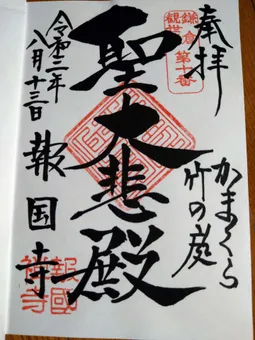 奉拝
鎌倉
観世音
第十番
かまくら
竹の庭
聖大悲殿
令和二年
八月十三日
報国寺
報國
禅寺